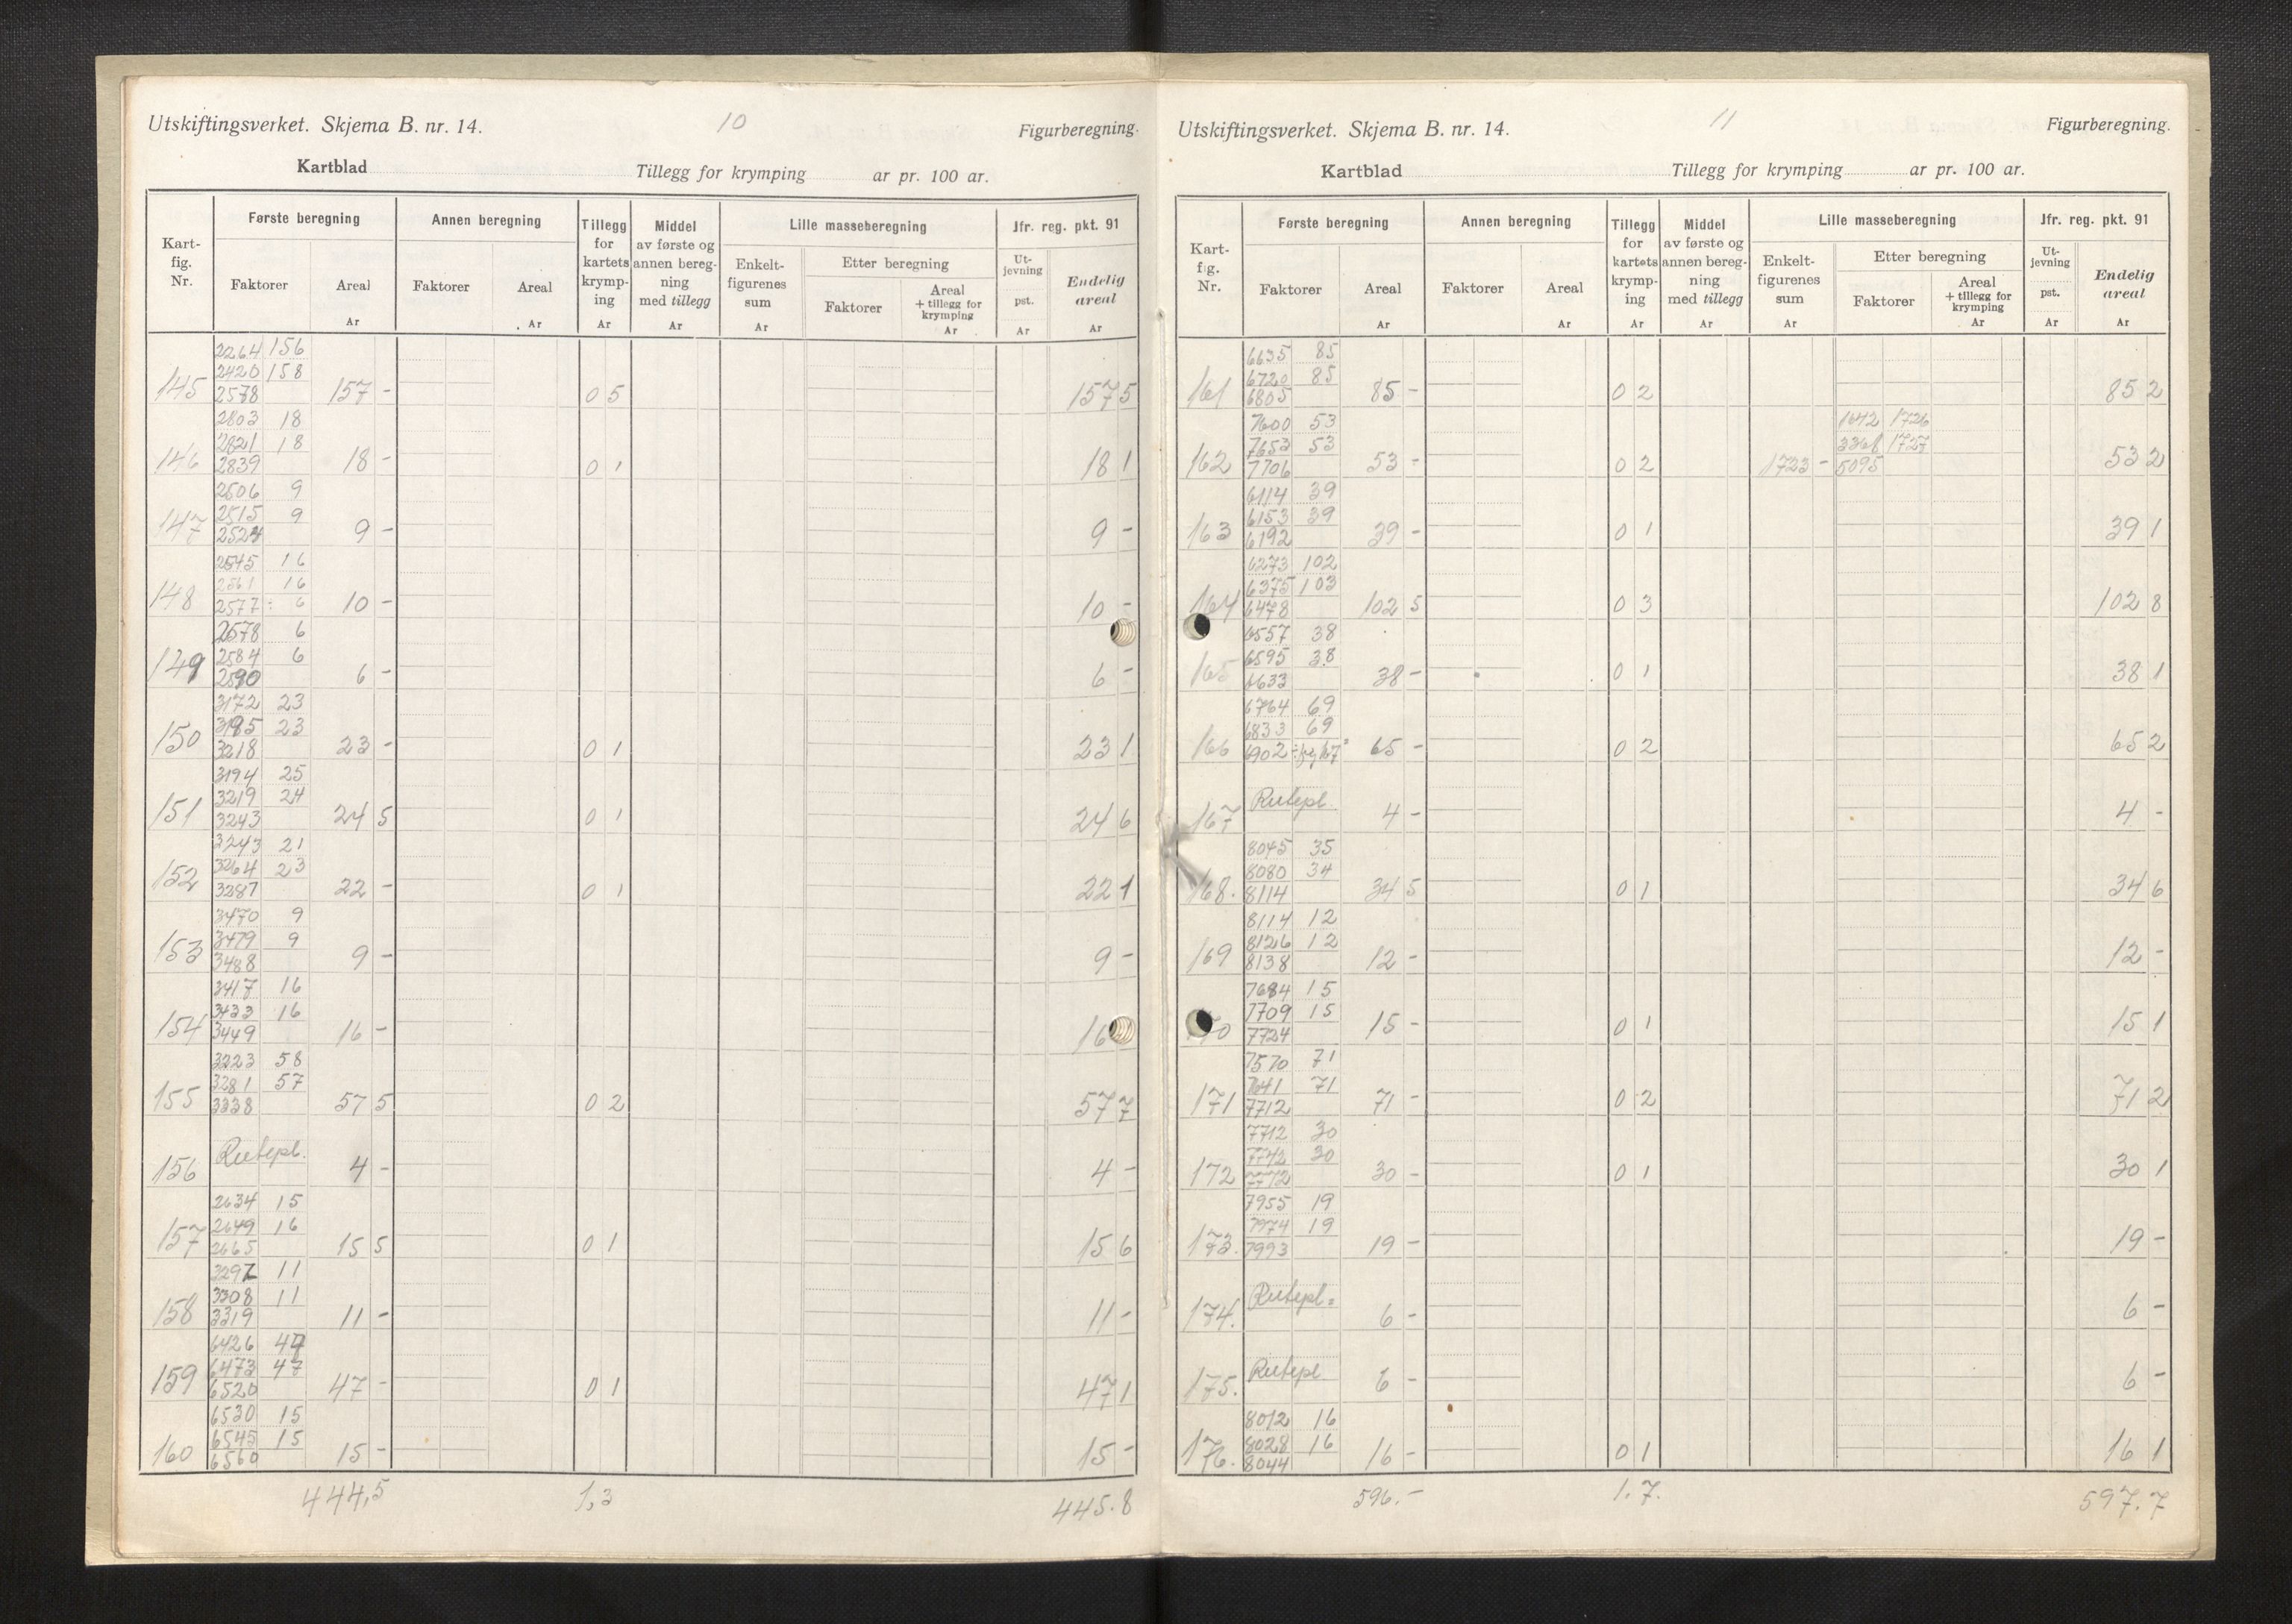 Utskiftingsverket. Skjema B. nr. 14.
10
Figurberegning.
Kartblad
Tillegg for krymping ar pr. 100 ar.
Kart-fig. Nr. | Første beregning | Annen beregning | Tillegg for kartets krymp-ing | Middel av første og annen bereg-ning med tillegg | Lille masseberegning | Jfr. reg. pkt. 91
Faktorer | Areal | Faktorer | Areal | Enkelt-figurenes sum | Etter beregning | Ut-jevning pst. | Endelig areal
Faktorer | Areal + tillegg for krymping
Ar | Ar | Ar | Ar | Ar | Ar | Ar | Ar
2264 156
2420 158
145 2578 157 - 0 5 157 5
2803 18
2821 18
146 2839 18 - 0 1 18 1
2506 9
2515 9
147 2524 9 - 9 -
2545 16
2561 16
148 2577 ÷ 6 10 - 10 -
2578 6
2584 6
149 2590 6 - 6 -
3172 23
3195 23
150 3218 23 - 0 1 23 1
3194 25
3219 24
151 3243 24 5 0 1 24 6
3243 21
3264 23
152 3287 22 - 0 1 22 1
3470 9
3479 9
153 3488 9 - 9 -
3417 16
3433 16
154 3449 16 - 16
3223 58
3281 57
155 3338 57 5 0 2 57 7
Rutepl.
156 4 - 4 -
2634 15
2649 16
157 2665 15 5 0 1 15 6
3297 11
3308 11
158 3319 11 - 11 -
6426 47
6473 47
159 6520 47 - 0 1 47 1
6530 15
6545 15
160 6560 15 - 15 -
444,5 1,3 445.8
Utskiftingsverket. Skjema B. nr. 14.
11
Figurberegning.
Kartblad
Tillegg for krymping ar pr. 100 ar.
Kart-fig. Nr. | Første beregning | Annen beregning | Tillegg for kartets krymp-ing | Middel av første og annen bereg-ning med tillegg | Lille masseberegning | Jfr. reg. pkt. 91
Faktorer | Areal | Faktorer | Areal | Enkelt-figurenes sum | Etter beregning | Ut-jevning pst. | Endelig areal
Faktorer | Areal + tillegg for krymping
Ar | Ar | Ar | Ar | Ar | Ar | Ar | Ar
6635 85
6720 85
161 6805 85 - 0 2 85 2
7600 53 1642 1726
7653 53 3368 1727
162 7706 53 - 0 2 1723 - 5095 53 2
6114 39
6153 39
163 6192 39 - 0 1 39 1
6273 102
6375 103
164 6478 102 5 0 3 102 8
6557 38
6595 38
165 6633 38 - 0 1 38 1
6764 69
6833 69
166 6902 ÷ fig 167 65 - 0 2 65 2
Rutepl.
167 4 - 4 -
8045 35
8080 34
168. 8114 34 5 0 1 34 6
8114 12
8126 12
169 8138 12 - 12 -
7694 15
7709 15
70 7724 15 - 0 1 15 1
7570 71
7641 71
171 7712 71 - 0 2 71 2
7712 30
7742 30
172 7772 30 - 0 1 30 1
7955 19
7974 19
173. 7993 19 - 19 -
Rutepl.
174. 6 - 6 -
Rutepl.
175. 6 - 6 -
8012 16
8028 16
176. 8044 16 - 0 1 16 1
596.- 1.7. 597.7